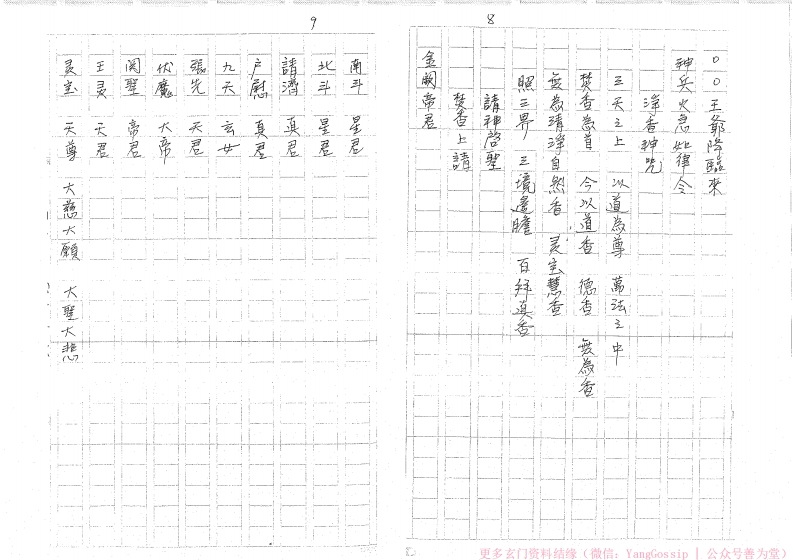 8
○○王爺降臨來
神兵火急如律令
淨香神咒
三天之上 以道為尊 萬法之中
焚香為首 今以道香 德香 無為香
無為清淨自然香 灵宝慧香
照三界 三境遙瞻 百拜真香
請神啓聖
焚香上請
金闕帝君
9
南斗 星君
北斗 星君
請濟 真君
户慰 真君
九天 玄女
張先 天君
伏魔 大帝
関聖 帝君
王灵 天君
灵宝 天尊 大慈大願 大聖大悲
更多玄门资料结缘（微信：YangGossip | 公众号善为堂）